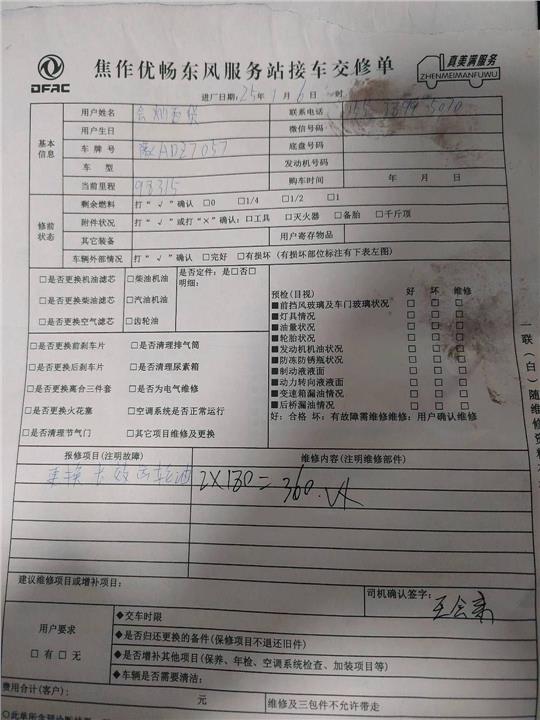 DFAC
焦作优畅东风服务站接车交修单
真美满服务
ZHENMEIMANFUWU
进厂日期：25年1月6日 时
基本信息
用户姓名 联系电话
用户生日 微信号码
车牌号 AD27057 底盘号码
车型 发动机号码
当前里程 93315 购车时间 年 月 日
修前状态
剩余燃料 打“√”确认 □0 □1/4 □1/2 □1
附件状况 打“√”或打“×”确认：□工具 □灭火器 □备胎 □千斤顶
其它装备 用户寄存物品
车辆外部情况 打“√”确认 □完好 □有损坏（有损坏部位标注有下表左图）
□是否更换机油滤芯 □柴油机油
□是否更换柴油滤芯 □汽油机油
□是否更换空气滤芯 □齿轮油
是否定件：是□否□
明细：
□是否更换前刹车片 □是否清理排气筒
□是否更换后刹车片 □是否清理尿素箱
□是否更换离合三件套 □是否为电气维修
□是否更换火花塞 □空调系统是否正常运行
□是否清理节气门 □其它项目维修及更换
预检(目视) 好 坏 维修
■前挡风玻璃及车门玻璃状况 □ □ □
■灯具情况 □ □ □
■油量状况 □ □ □
■轮胎状况 □ □ □
■发动机机油状况 □ □ □
■防冻防锈瓶状况 □ □ □
■制动液液面 □ □ □
■动力转向液液面 □ □ □
■变速箱漏油情况 □ □ □
■后桥漏油情况 □ □ □
好：合格 坏：有故障需维修维修：用户确认维修
一联（白）随维修资料
报修项目(注明故障) 维修内容(注明维修部件)
更换 齿轮油 2X180=360.
建议维修项目或增补项目：
司机确认签字：
王会来
用户要求
□有 □无
◆交车时限
◆是否归还更换的备件(保修项目不退还旧件)
◆是否增补其他项目(保养、年检、空调系统检查、加装项目等)
◆车辆是否需要清洁：
费用合计(客户)： 元 维修及三包件不允许带走